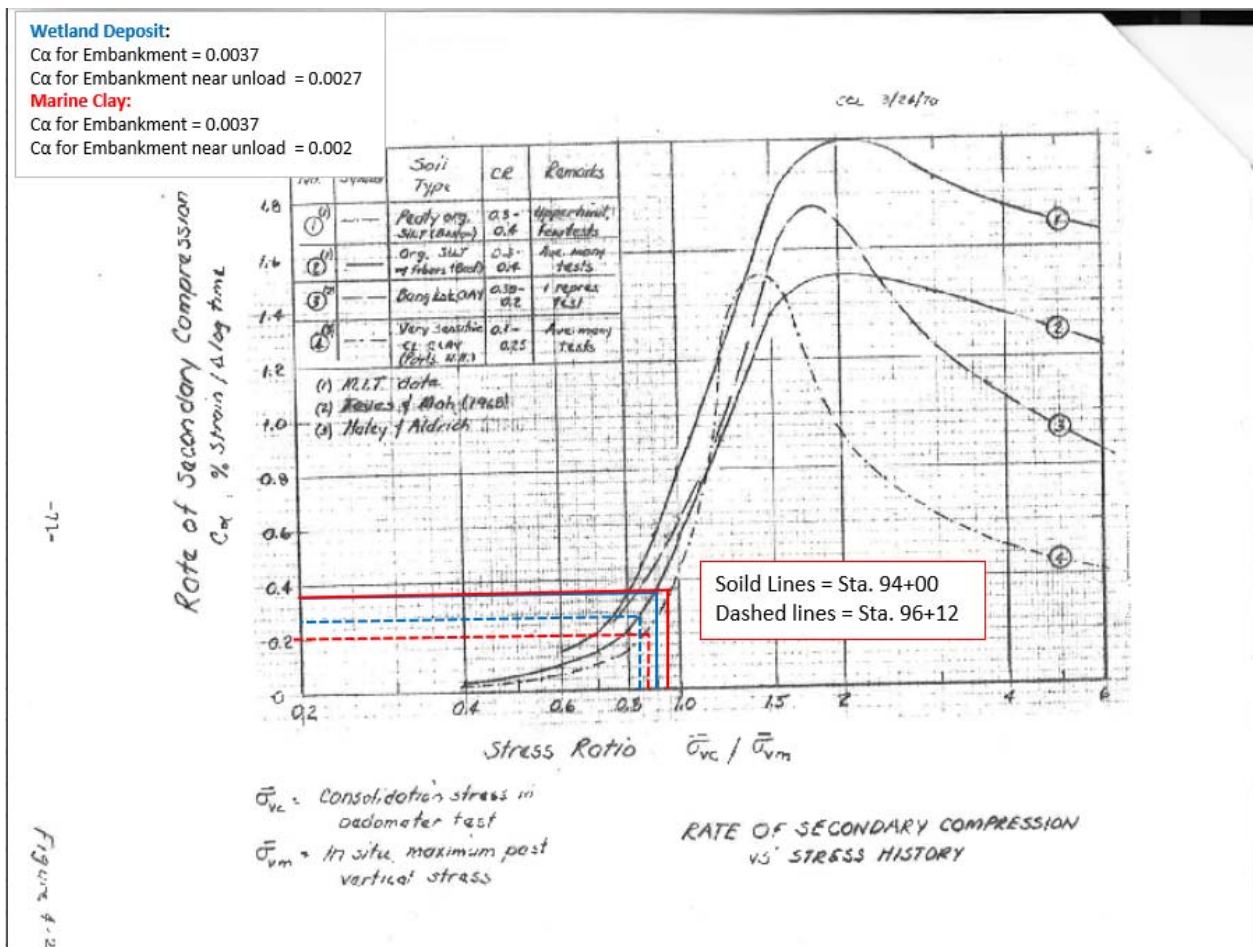 Wetland Deposit:
Cα for Embankment = 0.0037
Cα for Embankment near unload = 0.0027
Marine Clay:
Cα for Embankment = 0.0037
Cα for Embankment near unload = 0.002
CCL 3/26/70
Soil Type CR Remarks
1 (1) Peaty org. SILT (Boston) 0.3-0.4 Upper limit, Few tests
2 (1) Org. SILT w/ fibers 0.3-0.4 Ave. many tests
3 (2) Bangkok CLAY 0.2 1 repres. test
4 Very Sensitive CL. CLAY (Ports. N.H.) 0.25 Ave. many tests
(1) M.I.T. data
(2) & Moh (1968)
(3) Haley & Aldrich
Rate of Secondary Compression
Cα, % Strain / Δ log time
1.8
1.6
1.4
1.2
1.0
0.8
0.6
0.4
0.2
0
0.2 0.4 0.6 0.8 1.0 1.5 2 4 6
1
2
3
4
Soild Lines = Sta. 94+00
Dashed lines = Sta. 96+12
Stress Ratio σ̄vc / σ̄vm
σ̄vc = Consolidation stress in
oedometer test
σ̄vm = In situ maximum past
vertical stress
RATE OF SECONDARY COMPRESSION
VS STRESS HISTORY